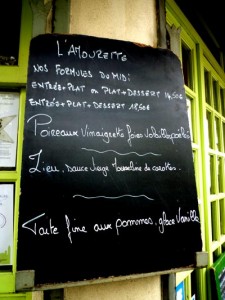 L'AMOURETTE
NOS FORMULES DU MIDI
ENTRÉE+PLAT ou PLAT+DESSERT 14,50€
ENTRÉE+PLAT+DESSERT 18,50€
Poireaux Vinaigrette foies Volaille poêlés
Lieu, sauce vierge Mousseline de carottes
Tarte fine aux pommes, glace Vanille